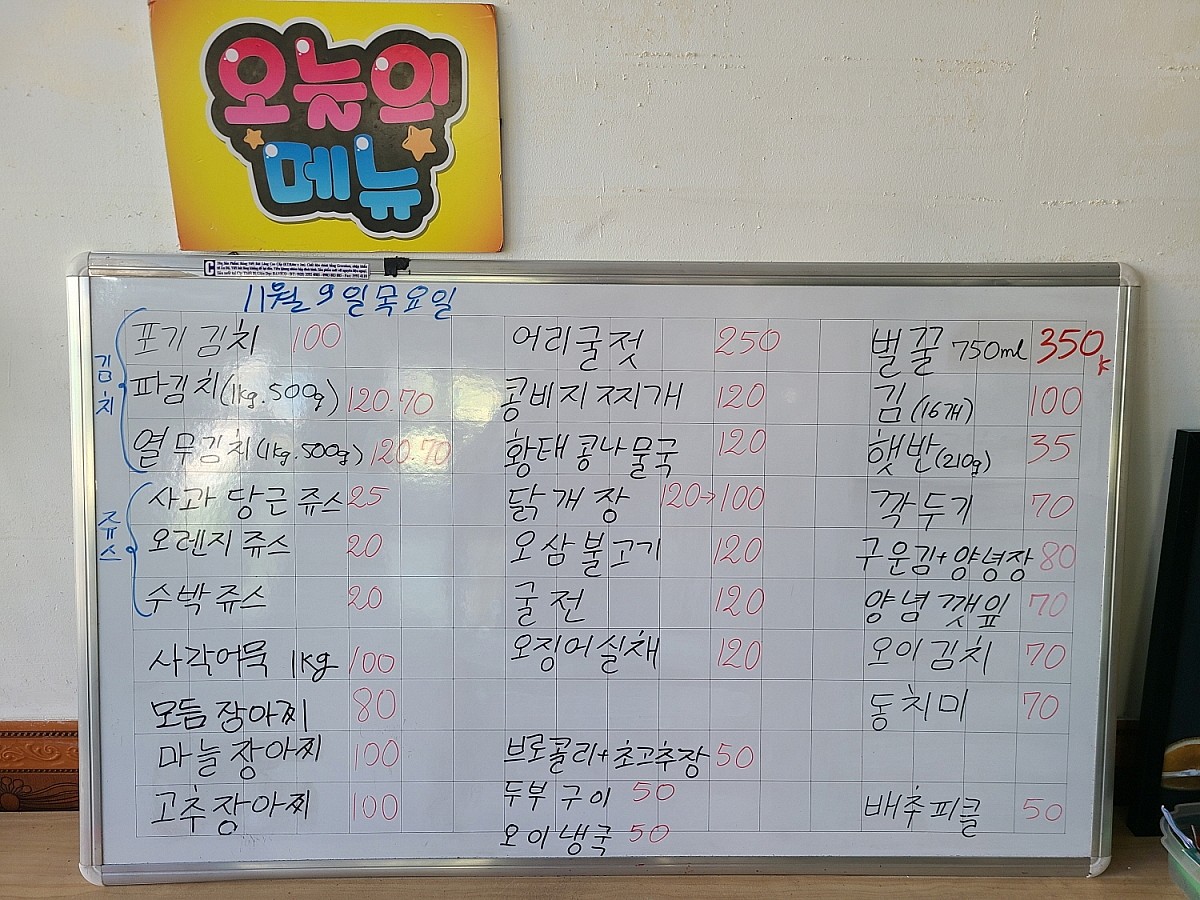 오늘의
메뉴
11월 9일 목요일
김치
포기김치 100
파김치(1kg.500g) 120.70
열무김치(1kg.500g) 120.70
쥬스
사과 당근 쥬스 25
오렌지 쥬스 20
수박 쥬스 20
사각어묵 1kg 100
모듬장아찌 80
마늘장아찌 100
고추장아찌 100
어리굴젓 250
콩비지찌개 120
황태콩나물국 120
닭개장 120→100
오삼불고기 120
굴전 120
오징어실채 120
브로콜리+초고추장 50
두부구이 50
오이냉국 50
벌꿀 750ml 350k
김(16개) 100
햇반(210g) 35
깍두기 70
구운김+양녕장 80
양념깻잎 70
오이김치 70
동치미 70
배추피클 50